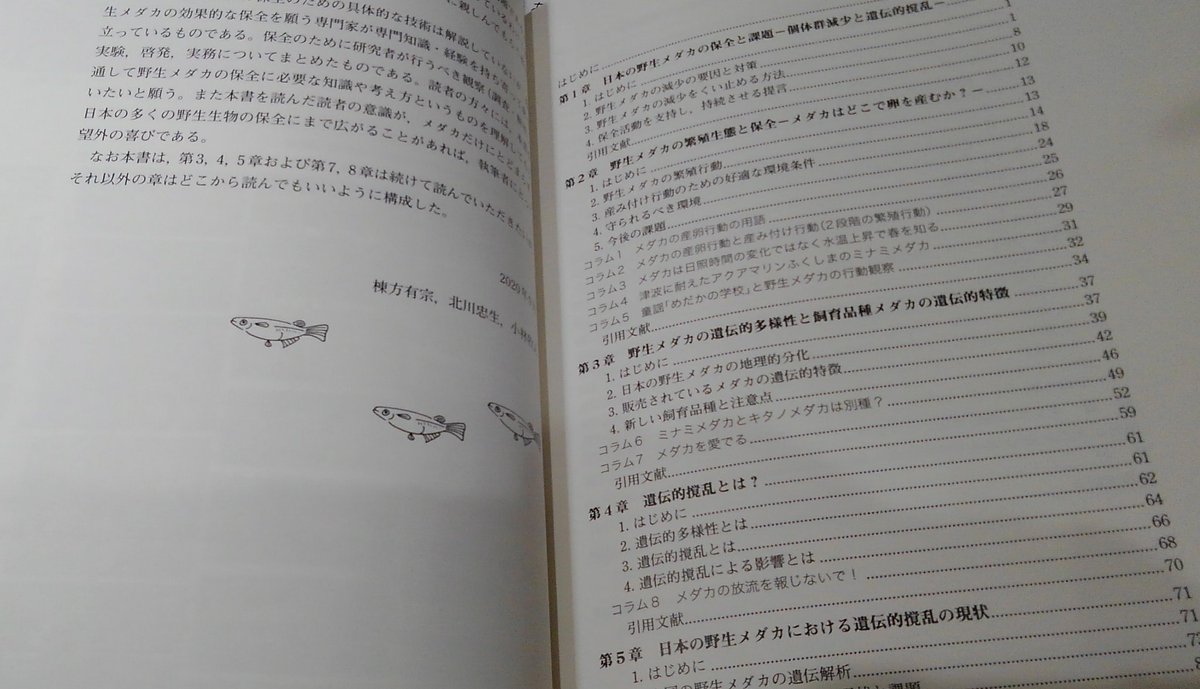 保全のための具体的な技術は解説していない
生メダカの効果的な保全を願う専門家が専門知識・経験を持ち
立っているものである。保全のために研究者が行うべき観察(調査
実験，啓発，実務についてまとめたものである。読者の方々には，
通して野生メダカの保全に必要な知識や考え方というものを理解して
いたいと願う。また本書を読んだ読者の意識が，メダカだけにとど
日本の多くの野生生物の保全にまで広がることがあれば，執筆者に
望外の喜びである。
なお本書は，第3, 4, 5章および第7, 8章は続けて読んでいただき
それ以外の章はどこから読んでもいいように構成した。
2020年
棟方有宗，北川忠生，小林
はじめに
第1章 日本の野生メダカの保全と課題－個体群減少と遺伝的撹乱－ 1
1. はじめに 1
2. 野生メダカの減少の要因と対策 8
3. 野生メダカの減少をくい止める方法 10
4. 保全活動を支持し，持続させる提言 12
引用文献 13
第2章 野生メダカの繁殖生態と保全－メダカはどこで卵を産むか？－ 13
1. はじめに 14
2. 野生メダカの繁殖行動 18
3. 産み付け行動のための好適な環境条件 24
4. 守られるべき環境 25
5. 今後の課題 26
コラム1 メダカの産卵行動の用語 27
コラム2 メダカの産卵行動と産み付け行動(2段階の繁殖行動) 29
コラム3 メダカは日照時間の変化ではなく水温上昇で春を知る 31
コラム4 津波に耐えたアクアマリンふくしまのミナミメダカ 32
コラム5 童謡「めだかの学校」と野生メダカの行動観察 34
引用文献 37
第3章 野生メダカの遺伝的多様性と飼育品種メダカの遺伝的特徴 37
1. はじめに 39
2. 日本の野生メダカの地理的分化 42
3. 販売されているメダカの遺伝的特徴 46
4. 新しい飼育品種と注意点 49
コラム6 ミナミメダカとキタノメダカは別種？ 52
コラム7 メダカを愛でる 59
引用文献 61
第4章 遺伝的撹乱とは？ 61
1. はじめに 62
2. 遺伝的多様性とは 64
3. 遺伝的撹乱とは 66
4. 遺伝的撹乱による影響とは 68
コラム8 メダカの放流を報じないで！ 70
引用文献 71
第5章 日本の野生メダカにおける遺伝的撹乱の現状 71
1. はじめに
国の野生メダカの遺伝解析